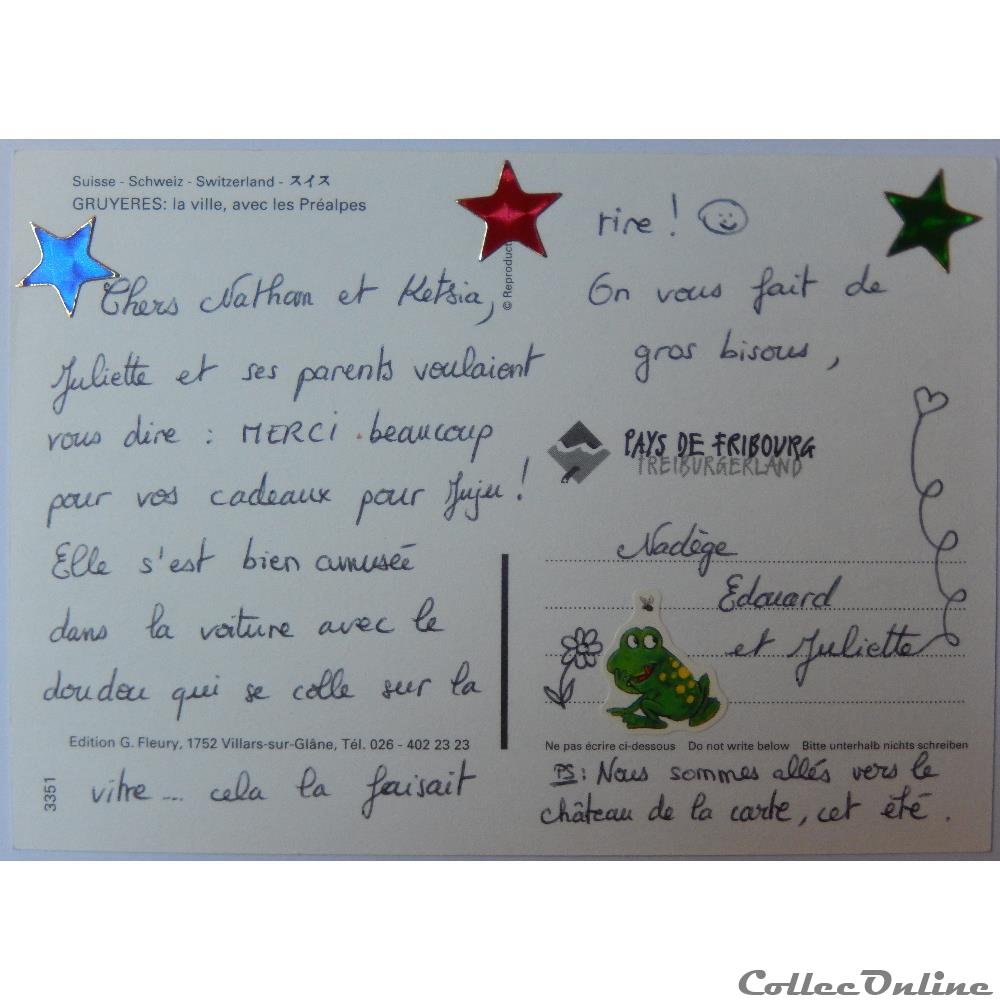 Suisse - Schweiz - Switzerland - スイス
GRUYERES: la ville, avec les Préalpes
Chers Nathan et Ketsia,
Juliette et ses parents voulaient
vous dire : MERCI beaucoup
pour vos cadeaux pour Juju !
Elle s'est bien amusée
dans la voiture avec le
doudou qui se colle sur la
Edition G. Fleury, 1752 Villars-sur-Glâne, Tél. 026 - 402 23 23
vitre ... cela la faisait
3351
© Reproduct
rire !
On vous fait de
gros bisous,
PAYS DE FRIBOURG
FREIBURGERLAND
Nadège
Edouard
et Juliette
Ne pas écrire ci-dessous Do not write below Bitte unterhalb nichts schreiben
PS : Nous sommes allés vers le
château de la carte, cet été.
CollecOnline